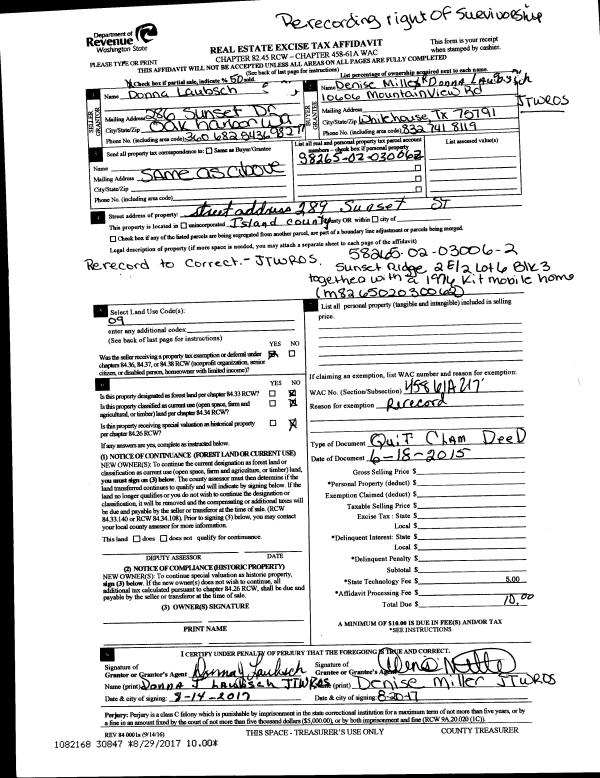 Rerecording right of Survivorship
Department of
Revenue
Washington State
REAL ESTATE EXCISE TAX AFFIDAVIT
This form is your receipt
when stamped by cashier.
PLEASE TYPE OR PRINT
CHAPTER 82.45 RCW – CHAPTER 458-61A WAC
THIS AFFIDAVIT WILL NOT BE ACCEPTED UNLESS ALL AREAS ON ALL PAGES ARE FULLY COMPLETED
(See back of last page for instructions)
Check box if partial sale, indicate % 50 sold.
List percentage of ownership acquired next to each name.
Name Donna Laubsch
Name Denise Miller & Donna Laubsch
JTWROS
SELLER
GRANTOR
Mailing Address 286 Sunset Dr
City/State/Zip Oak harbor Wa 98277
Phone No. (including area code) 360 682 8436
BUYER
GRANTEE
10606 Mountain View Rd
Mailing Address
City/State/Zip Whitehouse, Tx 75791
Phone No. (including area code) 832 741 8119
Send all property tax correspondence to: Same as Buyer/Grantee
Name
Mailing Address Same as above
City/State/Zip
Phone No. (including area code)
List all real and personal property tax parcel account
numbers – check box if personal property
98265-02-030062
List assessed value(s)
Street address of property: street address 289 Sunset ST
This property is located in unincorporated Island county County OR within city of
Check box if any of the listed parcels are being segregated from another parcel, are part of a boundary line adjustment or parcels being merged.
Legal description of property (if more space is needed, you may attach a separate sheet to each page of the affidavit)
58265-02-03006-2
Rerecord to correct.- JTWROS.
Sunset Ridge 2 E/2 Lot 6 Blk 3
together with a 1976 Kit mobile home
(m826502030062)
Select Land Use Code(s):
09
enter any additional codes:
(See back of last page for instructions)
YES NO
Was the seller receiving a property tax exemption or deferral under
chapters 84.36, 84.37, or 84.38 RCW (nonprofit organization, senior
citizen, or disabled person, homeowner with limited income)?
YES NO
Is this property designated as forest land per chapter 84.33 RCW?
Is this property classified as current use (open space, farm and
agricultural, or timber) land per chapter 84.34 RCW?
Is this property receiving special valuation as historical property
per chapter 84.26 RCW?
If any answers are yes, complete as instructed below.
(1) NOTICE OF CONTINUANCE (FOREST LAND OR CURRENT USE)
NEW OWNER(S): To continue the current designation as forest land or
classification as current use (open space, farm and agriculture, or timber) land,
you must sign on (3) below. The county assessor must then determine if the
land transferred continues to qualify and will indicate by signing below. If the
land no longer qualifies or you do not wish to continue the designation or
classification, it will be removed and the compensating or additional taxes will
be due and payable by the seller or transferor at the time of sale. (RCW
84.33.140 or RCW 84.34.108). Prior to signing (3) below, you may contact
your local county assessor for more information.
This land does does not qualify for continuance.
DEPUTY ASSESSOR DATE
(2) NOTICE OF COMPLIANCE (HISTORIC PROPERTY)
NEW OWNER(S): To continue special valuation as historic property,
sign (3) below. If the new owner(s) does not wish to continue, all
additional tax calculated pursuant to chapter 84.26 RCW, shall be due and
payable by the seller or transferor at the time of sale.
(3) OWNER(S) SIGNATURE
PRINT NAME
List all personal property (tangible and intangible) included in selling
price.
If claiming an exemption, list WAC number and reason for exemption:
WAC No. (Section/Subsection) 458 61A 217
Reason for exemption Rerecord
Type of Document Quit Clam Deed
Date of Document 6-18-2015
Gross Selling Price $
*Personal Property (deduct) $
Exemption Claimed (deduct) $
Taxable Selling Price $
Excise Tax : State $
Local $
*Delinquent Interest: State $
Local $
*Delinquent Penalty $
Subtotal $
*State Technology Fee $ 5.00
*Affidavit Processing Fee $
Total Due $ 10.00
A MINIMUM OF $10.00 IS DUE IN FEE(S) AND/OR TAX
*SEE INSTRUCTIONS
I CERTIFY UNDER PENALTY OF PERJURY THAT THE FOREGOING IS TRUE AND CORRECT.
Signature of
Grantor or Grantor's Agent Donna J Laubsch
Name (print) Donna J Laubsch JTWROS
Date & city of signing: 8-14-2017
Signature of
Grantee or Grantee's Agent Denise Miller
Name (print) Denise Miller JTWROS
Date & city of signing: 8-20-17
Perjury: Perjury is a class C felony which is punishable by imprisonment in the state correctional institution for a maximum term of not more than five years, or by
a fine in an amount fixed by the court of not more than five thousand dollars ($5,000.00), or by both imprisonment and fine (RCW 9A.20.020 (1C)).
REV 84 0001a (9/14/16)
THIS SPACE - TREASURER'S USE ONLY
COUNTY TREASURER
1082168 30847 *8/29/2017 10.00*